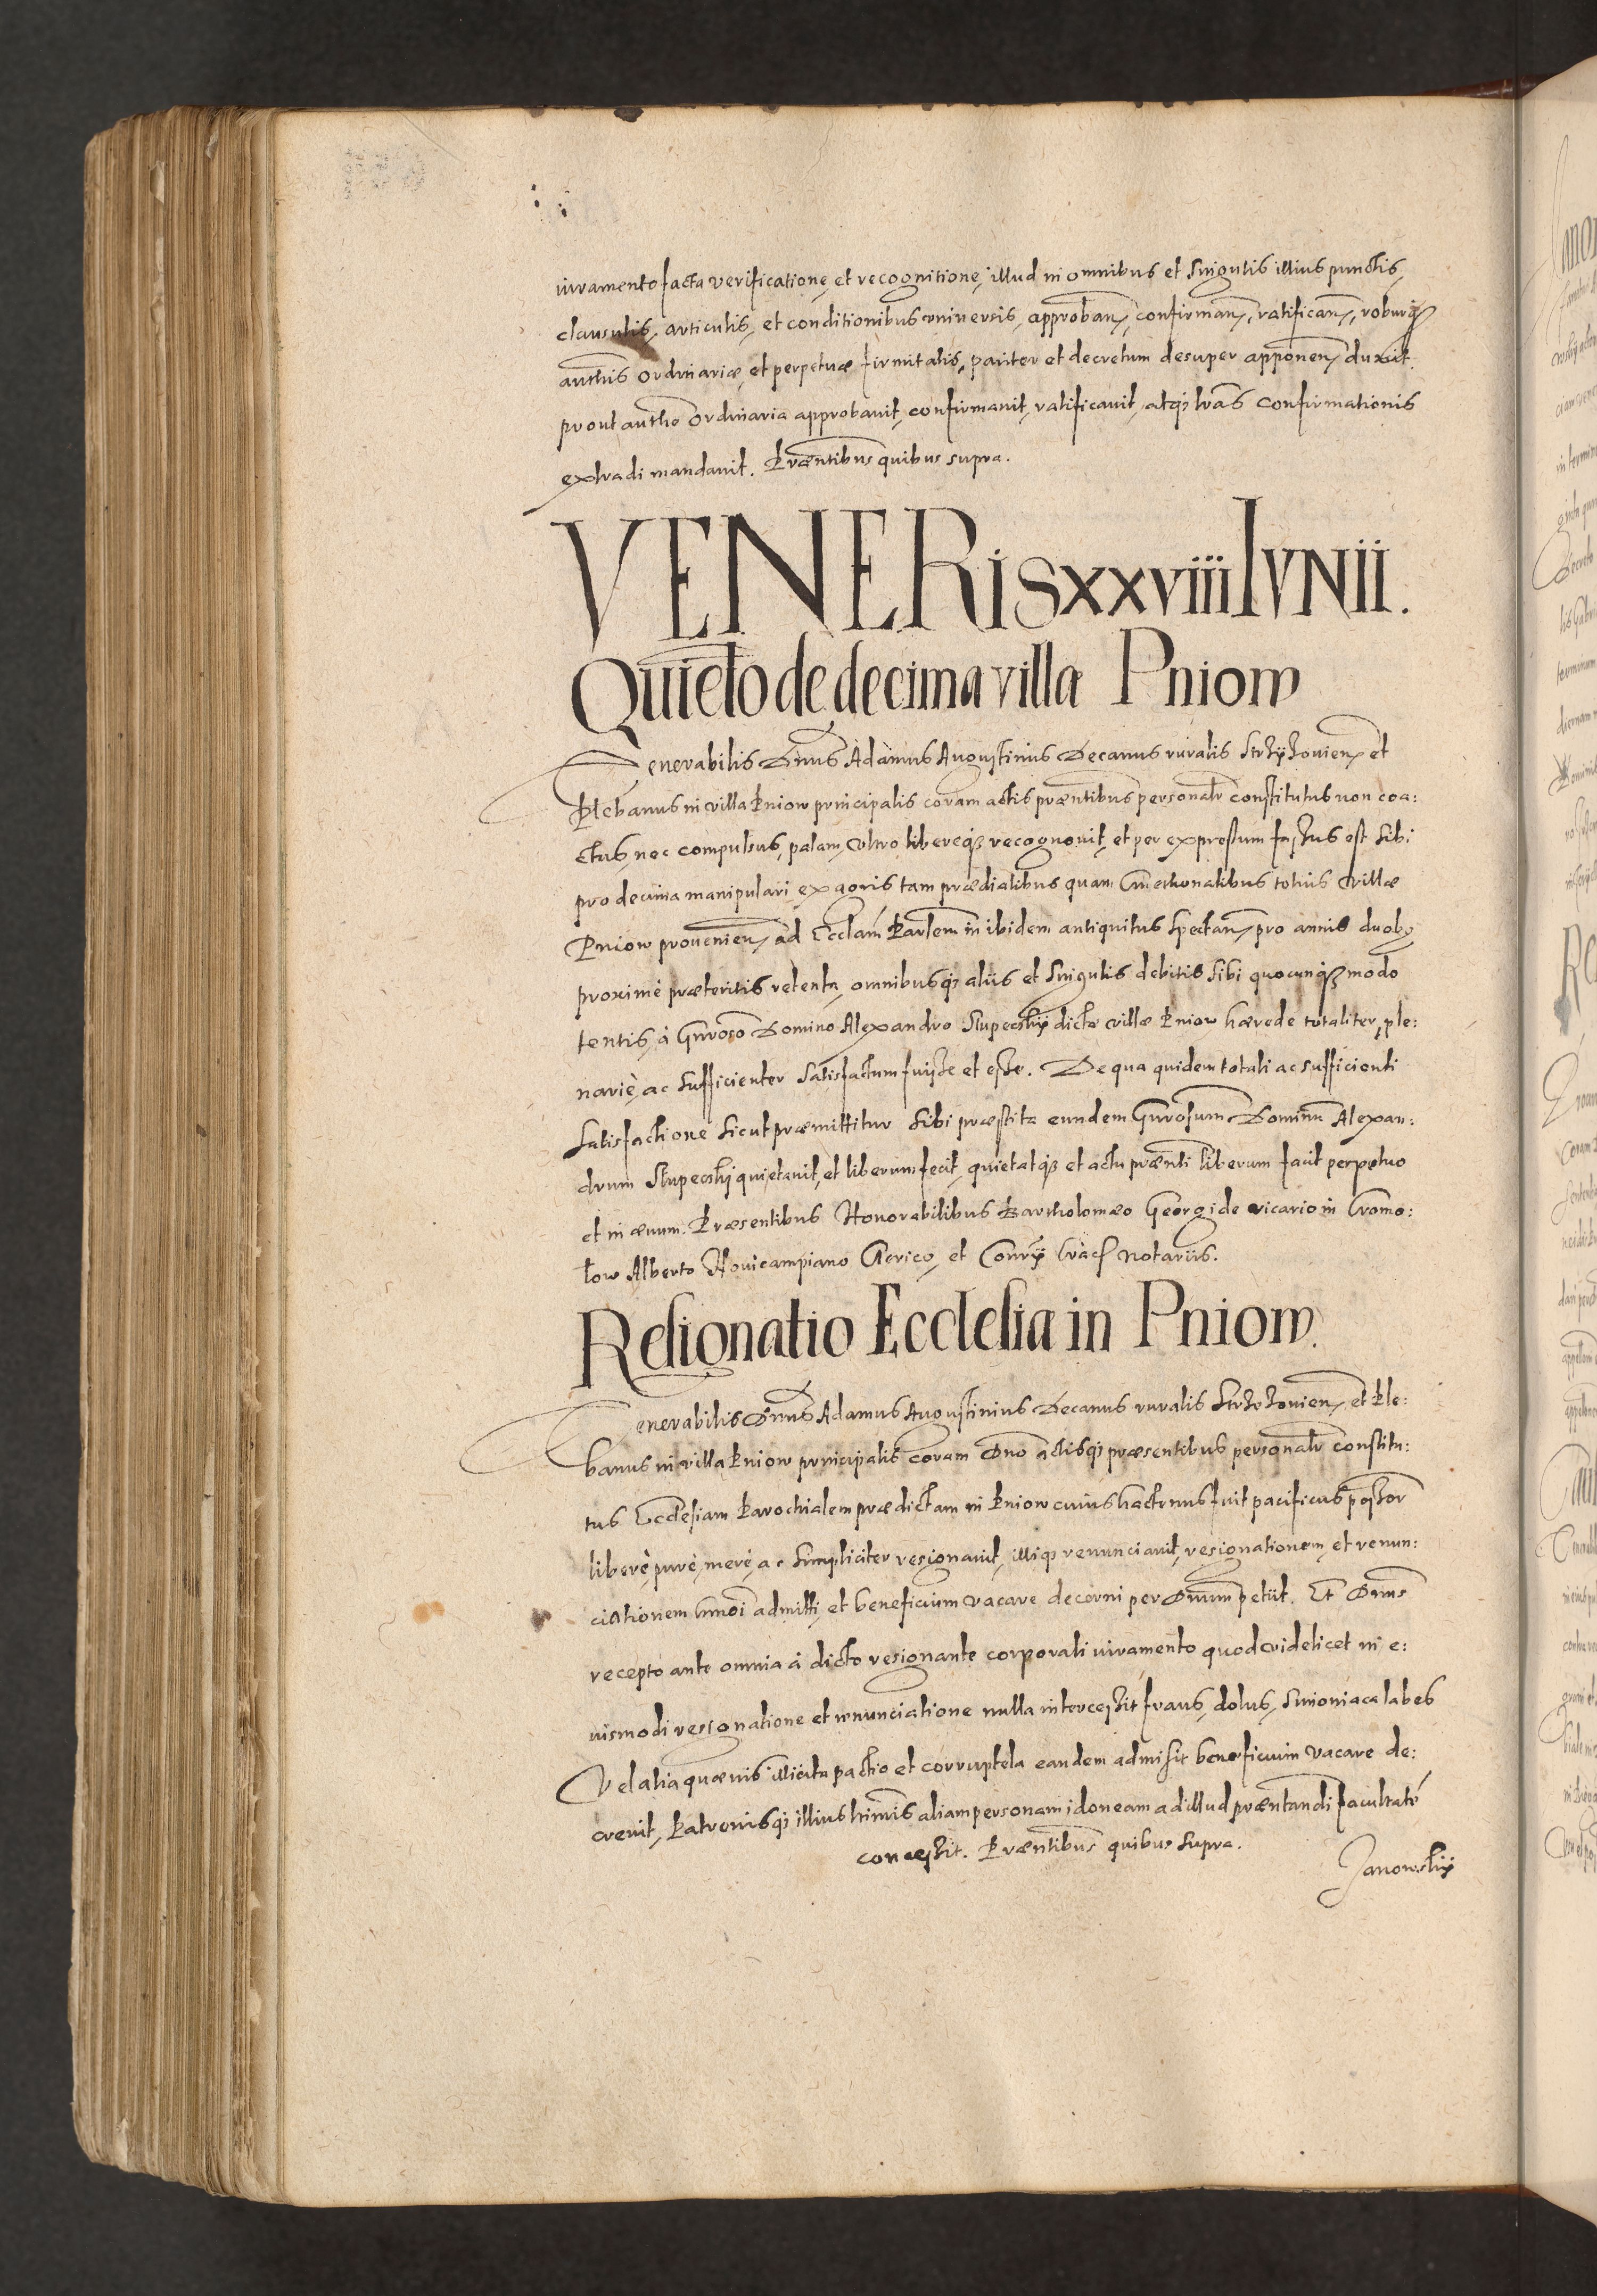 iuramento facta verificatione, et recognitione, illud in omnibus et singulis illius punctis,
clausulis, articulis, et conditionibus universis, approban, confirman, ratifican, roburq
auth̃is ordinariæ, et perpetuæ firmitatis, pariter et decretum desuper apponen duxit.
prout auth̃e ordinaria approbavit, confirmavit, ratificavit, atq; lr̃as confirmationis
extradi mandavit. Præñtibus quibus supra.
VENERIS XXVIII IVNII.
Quietõ de decima villa Pniow
Venerabilis Dñus Adamus Augustinus Decanus ruralis Strzÿzovien et
Plebanus in villa Pniow principalis coram actis præñtibus personalr̃ constitutus non coa:
ctus, nec compulsus, palam, ultro libereq; recognovit, et per expressum fassus est sibi
pro decima manipulari, ex agris tam prædialibus quam Cmethonalibus totius villæ
Pniow provenien, ad Eccl̃am Parlem̃ in ibidem antiquitus spectan, pro annis duobus
proximè præteritis retenta, omnibusq; aliis et singulis debitis sibi quocunq; modo
tentis, à Gñroso Domino Alexandro Slupecskÿ dictæ villæ Pniow hærede totaliter, ple:
nariè, ac sufficienter satisfactum fuisse et esse. De qua quidem totali ac sufficienti
satisfactione sicut præmittitur sibi præstita eundem Gñrosum Dominũ Alexan:
drum Slupecskÿ quietavit, et liberum fecit, quietatq; et actu præñti liberum facit perpetuo
et in ævum. Præsentibus Honorabilibus Bartholomæo Georgide vicario in Cromo:
low Alberto Novicampiano Clerico, et Conr̃ÿ Notariis.
Resignatio Ecclesia in Pniow.
Venerabilis Dñus Adamus Augustinius Decanus ruralis Strzezovien, et Ple:
banus in villa Pniow principalis coram Dño actisq; præsentibus personalr̃ constitu:
tus Ecclesiam Parochialem prædictam in Pniow cuius hactenus fuit pacificus possor̃
liberè, purè, merè, ac simpliciter resignavit, illiq; renunciavit, resignationem, et renun:
ciationem hm̃oi admitti, et beneficium vacare decerni per Dñum petiit. Et Dñus
recepto ante omnia à dicto resignante corporali iuramento quod videlicet in e:
iusmodi resignatione et renunciatione nulla intercessit fraus, dolus, simoniaca labes
Vel alia quævis illicita pactio et corruptela eandem admisit beneficium vacare de:
crevit, Patronisq; illius l̃timis aliam personam idoneam ad illud præñtandi facultatẽ
concessit. Præñtibus quibus supra.
Janowskÿ